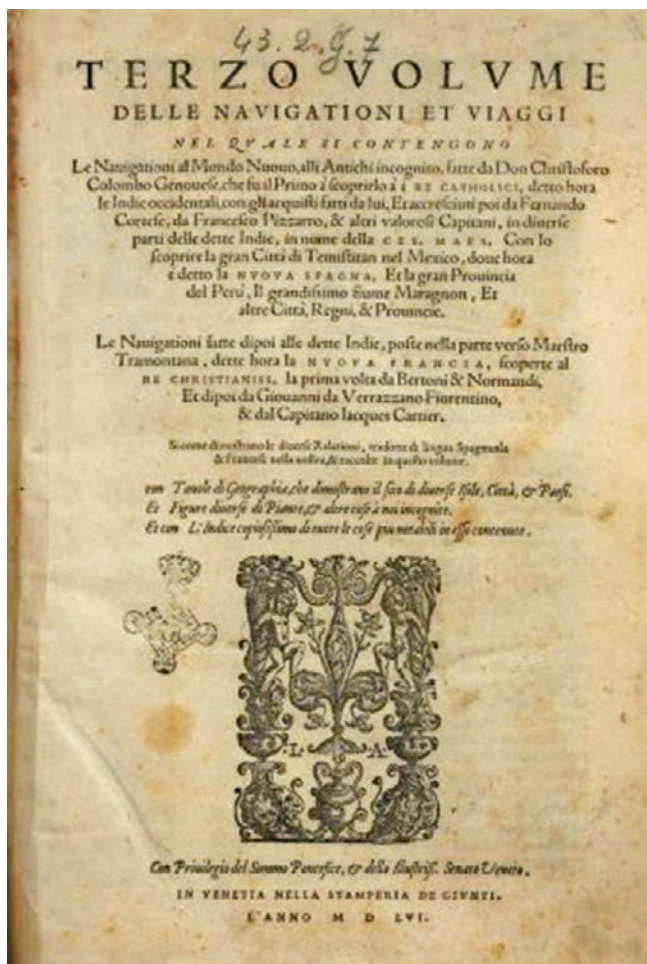 43.2.g.7
TERZO VOLVME
DELLE NAVIGATIONI ET VIAGGI
NEL QVALE SI CONTENGONO
Le Nauigationi al Mondo Nuouo, alli Antichi incognito, fatte da Don Christoforo
Colombo Genouese, che fu il Primo à scoprirlo à i RE CATHOLICI, detto hora
le Indie occidentali, con gli acquisti fatti da lui, Et accresciuti poi da Fernando
Cortese, da Francesco Pizzarro, & altri valorosi Capitani, in diuerse
parti delle dette Indie, in nome della CES. MAES. Con lo
scoprire la gran Città di Temistitan nel Mexico, doue hora
è detto la NVOVA SPAGNA, Et la gran Prouincia
del Perù, Il grandissimo fiume Maragnon, Et
altre Città, Regni, & Prouincie.
Le Nauigationi fatte dipoi alle dette Indie, poste nella parte verso Maestro
Tramontana, dette hora la NVOVA FRANCIA, scoperte al
RE CHRISTIANISS. la prima volta da Bertoni & Normandi,
Et dipoi da Giouanni da Verrazzano Fiorentino,
& dal Capitano Iacques Cartier.
Si come dimostrano le diuerse Relationi, tradotte di lingua Spagnuola
& Francese nella nostra, & raccolte in questo volume.
con Tauole di Geographia, che dimostrano il sito di diuerse Isole, Città, & Paesi.
Et Figure diuerse di Piante, & altre cose à noi incognite.
Et con L'Indice copiosissimo di tutte le cose piu notabili in esso contenute.
L. A.
Con Priuilegio del Sommo Pontefice, & dello Illustriss. Senato Veneto.
IN VENETIA NELLA STAMPERIA DE GIVNTI.
L'ANNO M D LVI.